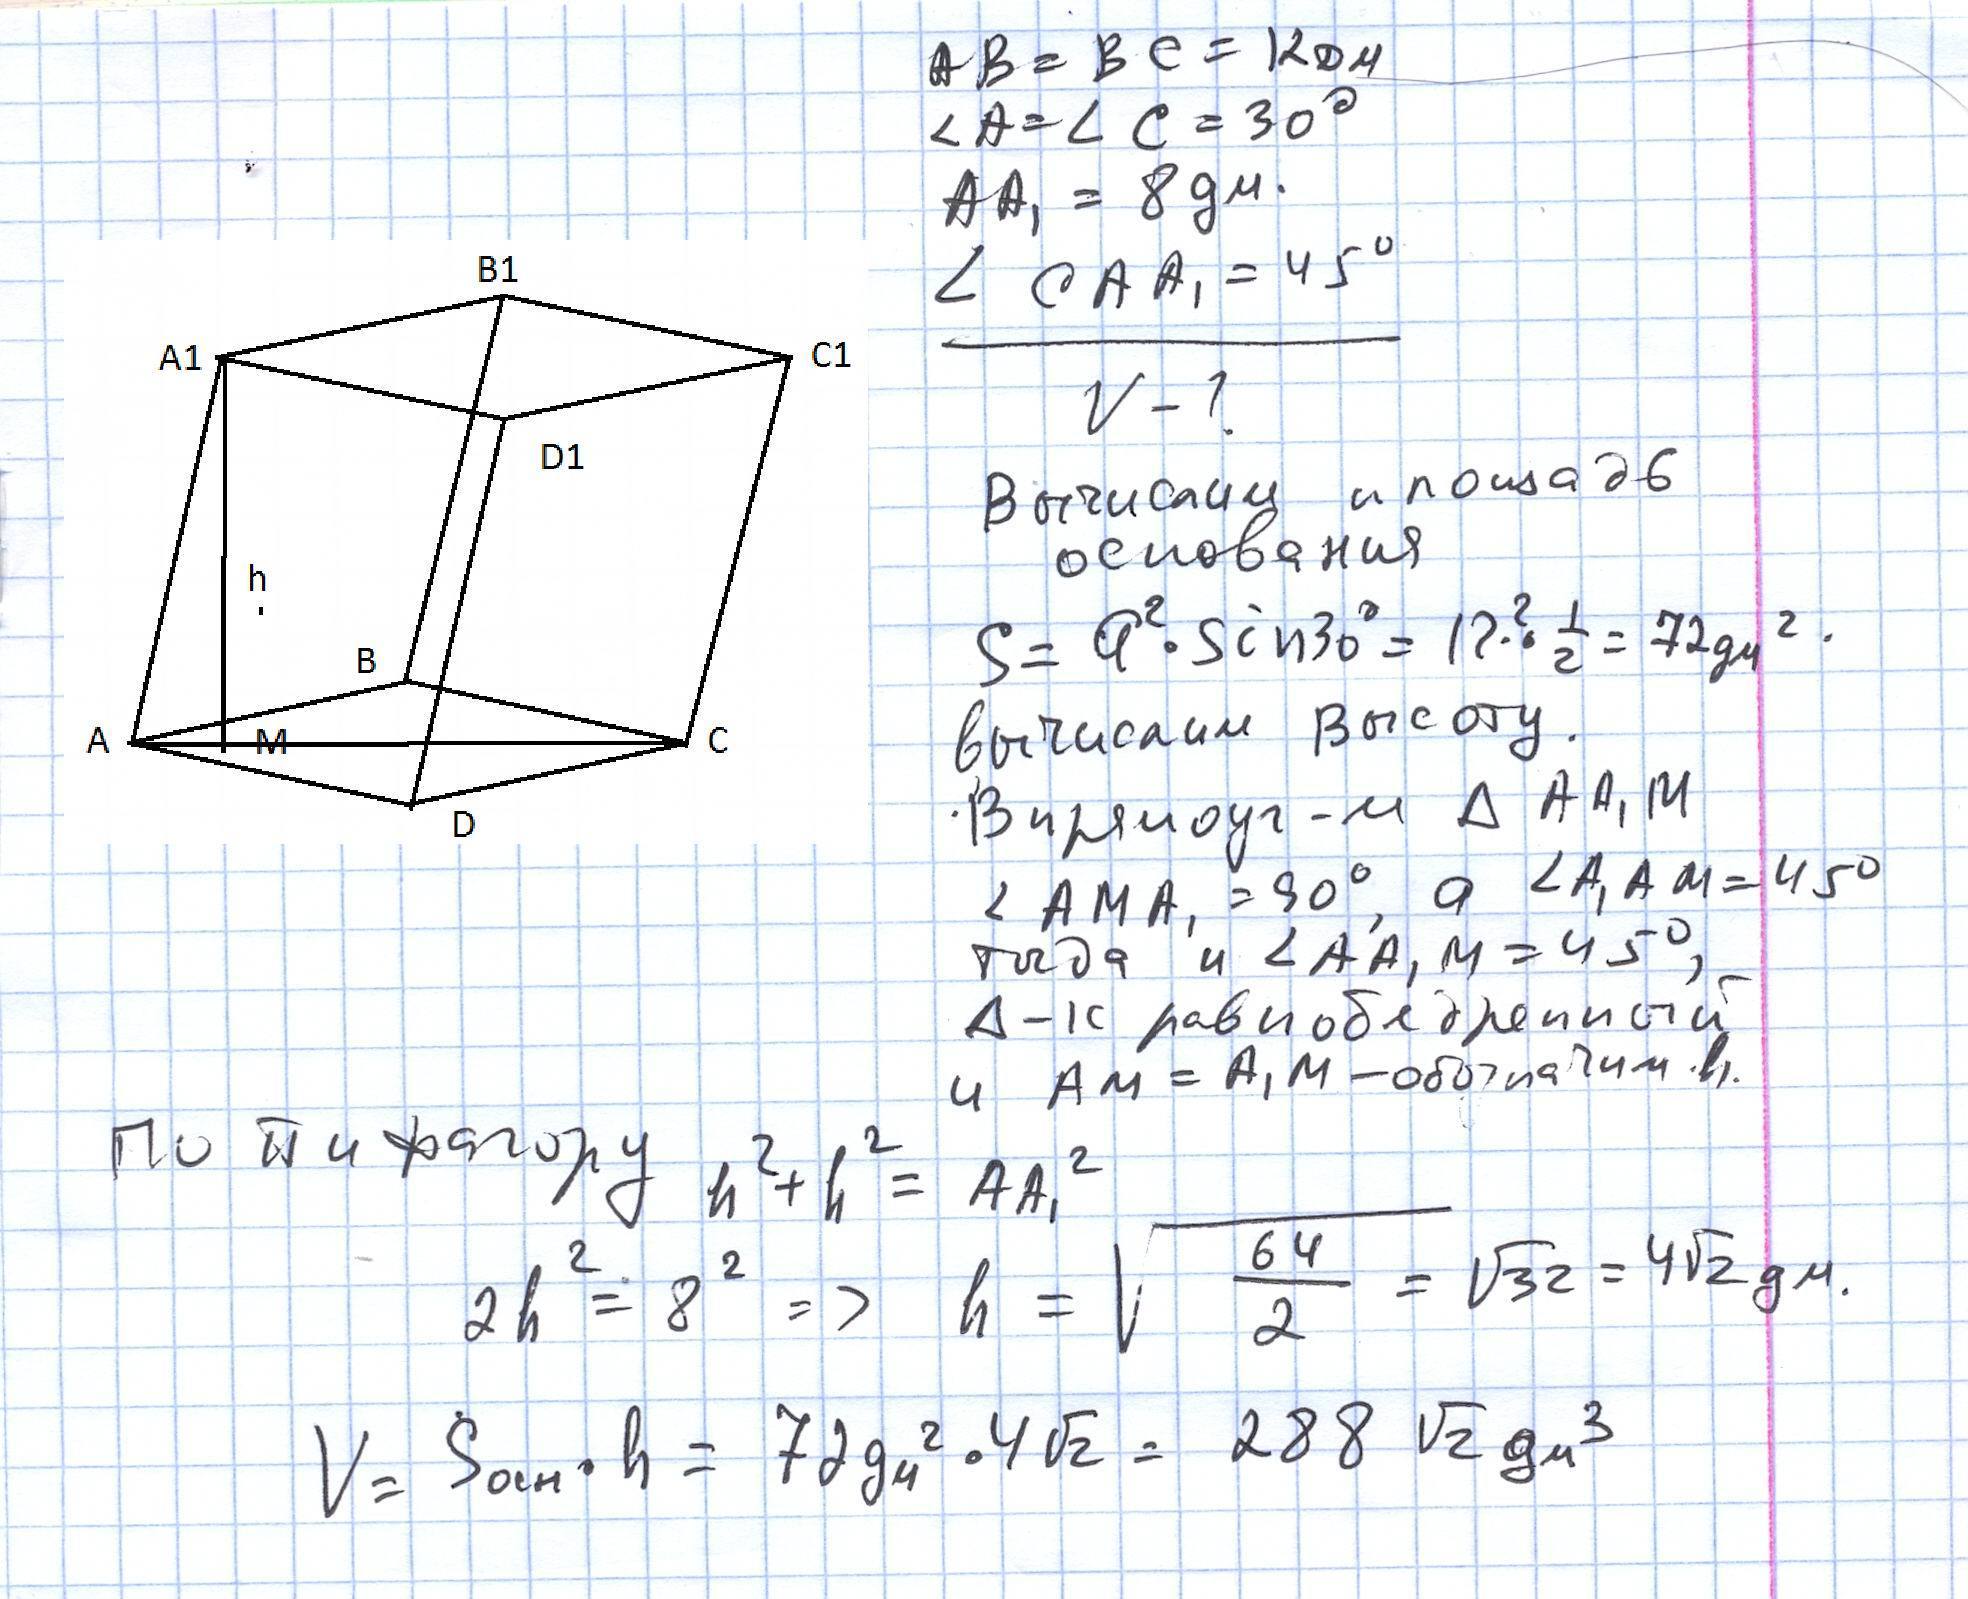 AB = BC = 12дм
∠A = ∠C = 30°
AA₁ = 8дм.
∠ CAA₁ = 45°
V - ?
B1
A1
C1
D1
h
B
A
M
C
D
Вычислим площадь
основания
S = a² · Sin30° = 12² · 1/2 = 72дм².
вычислим высоту.
В прямоуг-м Δ AA₁M
∠AMA₁ = 90°, а ∠A₁AM = 45°
тогда и ∠AA₁M = 45°,
Δ-к равнобедренный
и AM = A₁M – обозначим h.
По Пифагору h² + h² = AA₁²
2h² = 8² => h = √(64/2) = √32 = 4√2 дм.
V = Sосн · h = 72дм² · 4√2 = 288 √2 дм³